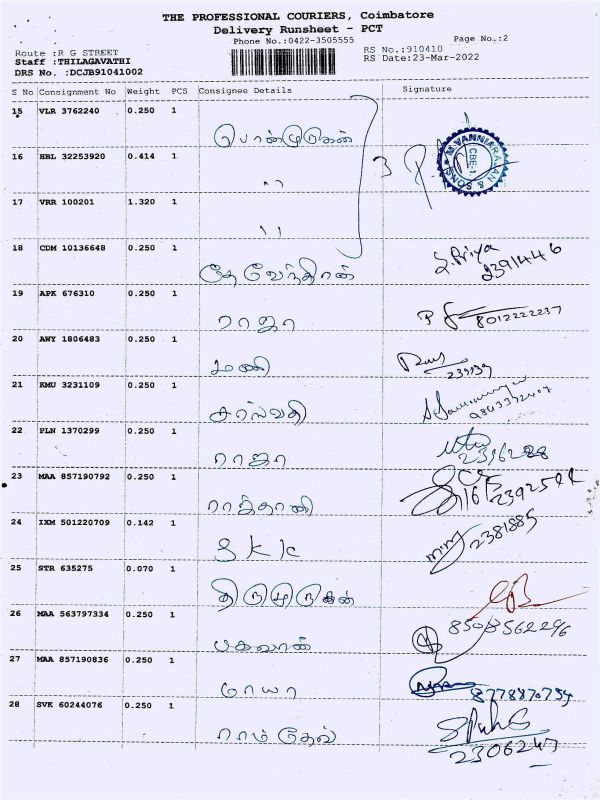 THE PROFESSIONAL COURIERS, Coimbatore
Delivery Runsheet - PCT
Phone No.:0422-3505555 Page No.:2
Route :R G STREET RS No.:910410
Staff :THILAGAVATHI RS Date:23-Mar-2022
DRS No. :DCJB91041002
S No Consignment No Weight PCS Consignee Details Signature
15 VLR 3762240 0.250 1
பொன்முருகன்
16 HBL 32253920 0.414 1
" 3
M.VANNIARAJAN & SONS CBE-1
17 VRR 100201 1.320 1
"
18 CDM 10136648 0.250 1
தேவேந்திரன் S. Priya
2391446
19 APK 676310 0.250 1
ராஜா 8012222237
20 AWY 1806483 0.250 1
மணி
21 KMU 3231109 0.250 1
சரஸ்வதி
22 PLN 1370299 0.250 1
ராஜா 2316288
23 MAA 857190792 0.250 1
ராத்தாணி
24 IXM 501220709 0.142 1
S k k 2381885
25 STR 635275 0.070 1
திருமுருகன்
26 MAA 563797334 0.250 1
பகவான் 8508562296
27 MAA 857190836 0.250 1
மாயா 8778870754
28 SVK 60244076 0.250 1
ராம்தேவ் 2306247